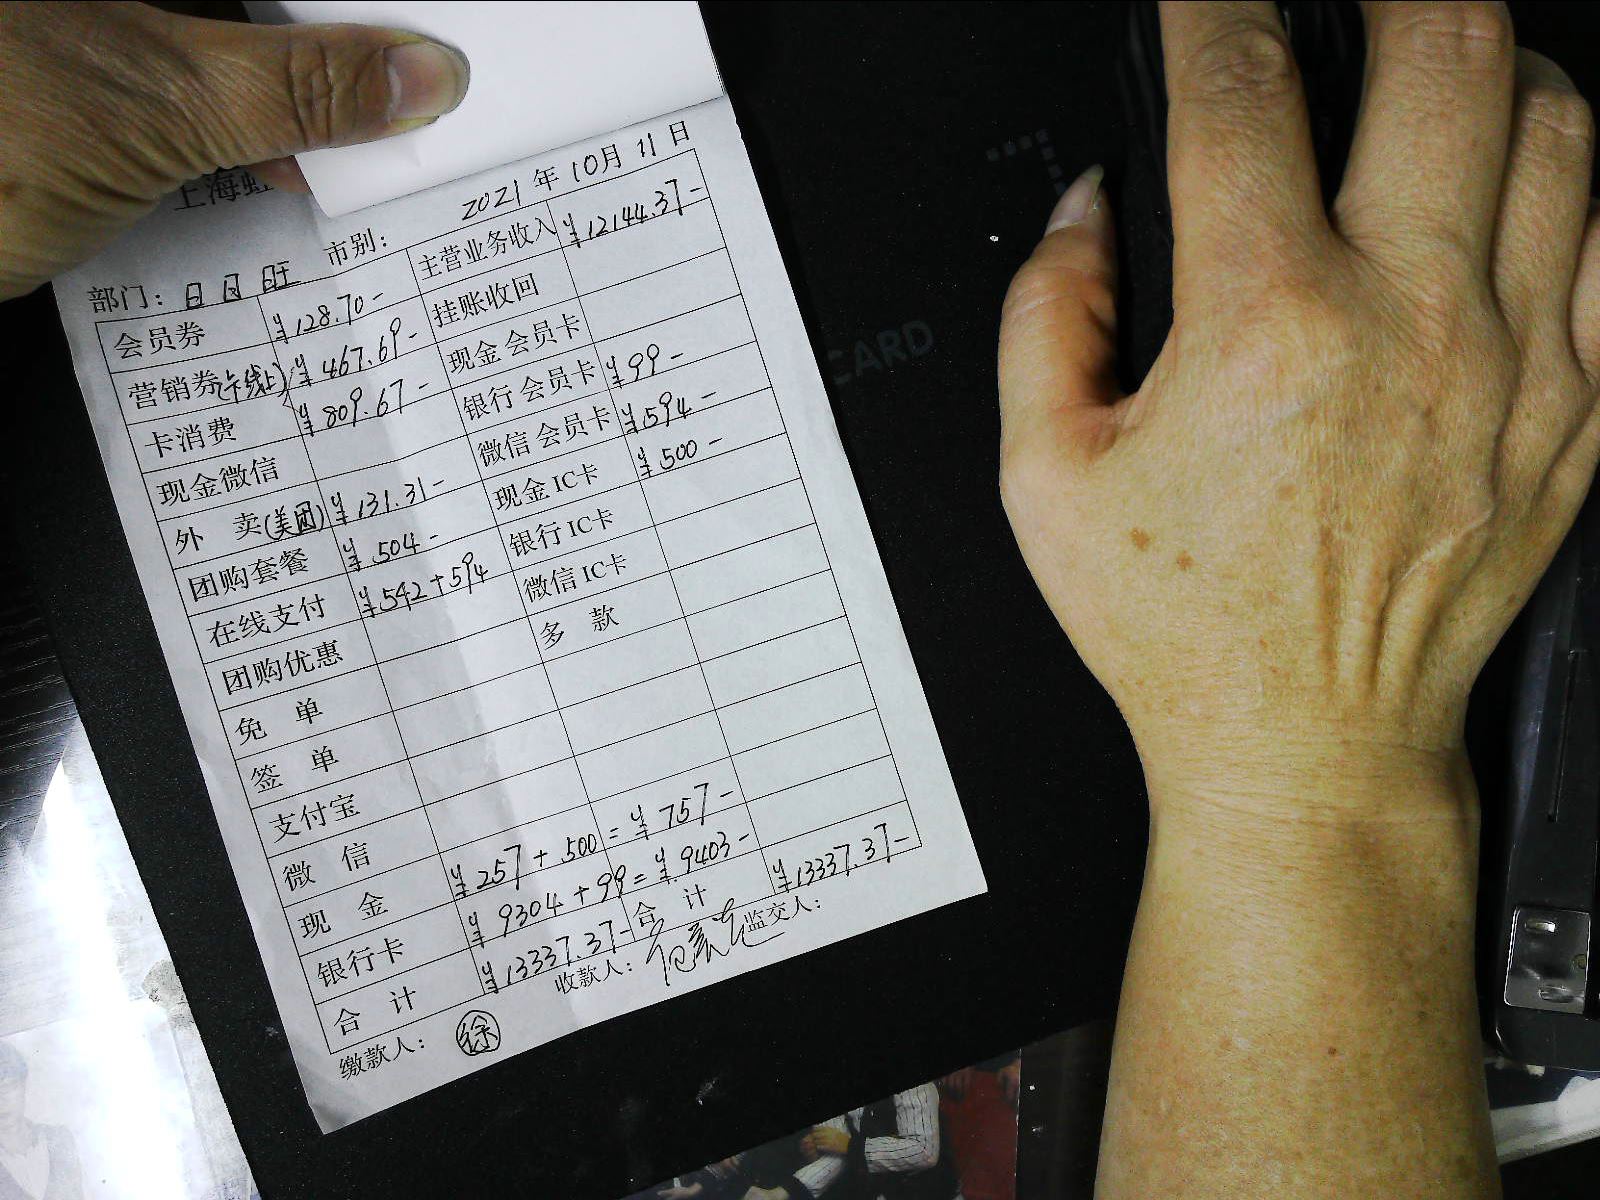 上海虹
2021 年 10月 11 日
部门: 日日旺 市别:
会员券 ¥128.70- 主营业务收入 ¥12144.37-
营销券(卡线上) ¥467.69- 挂账收回
卡消费 ¥809.67- 现金会员卡
现金微信 银行会员卡 ¥99-
外 卖(美团) ¥131.31- 微信会员卡 ¥594-
团购套餐 ¥504- 现金IC卡 ¥500-
在线支付 ¥542+594 银行IC卡
团购优惠 微信IC卡
免 单 多 款
签 单
支付宝
微 信
现 金 ¥257+500=¥757-
银行卡 ¥9304+99=¥9403-
合 计 ¥13337.37- 合 计 ¥13337.37-
缴款人: 徐 收款人: 监交人:
CARD